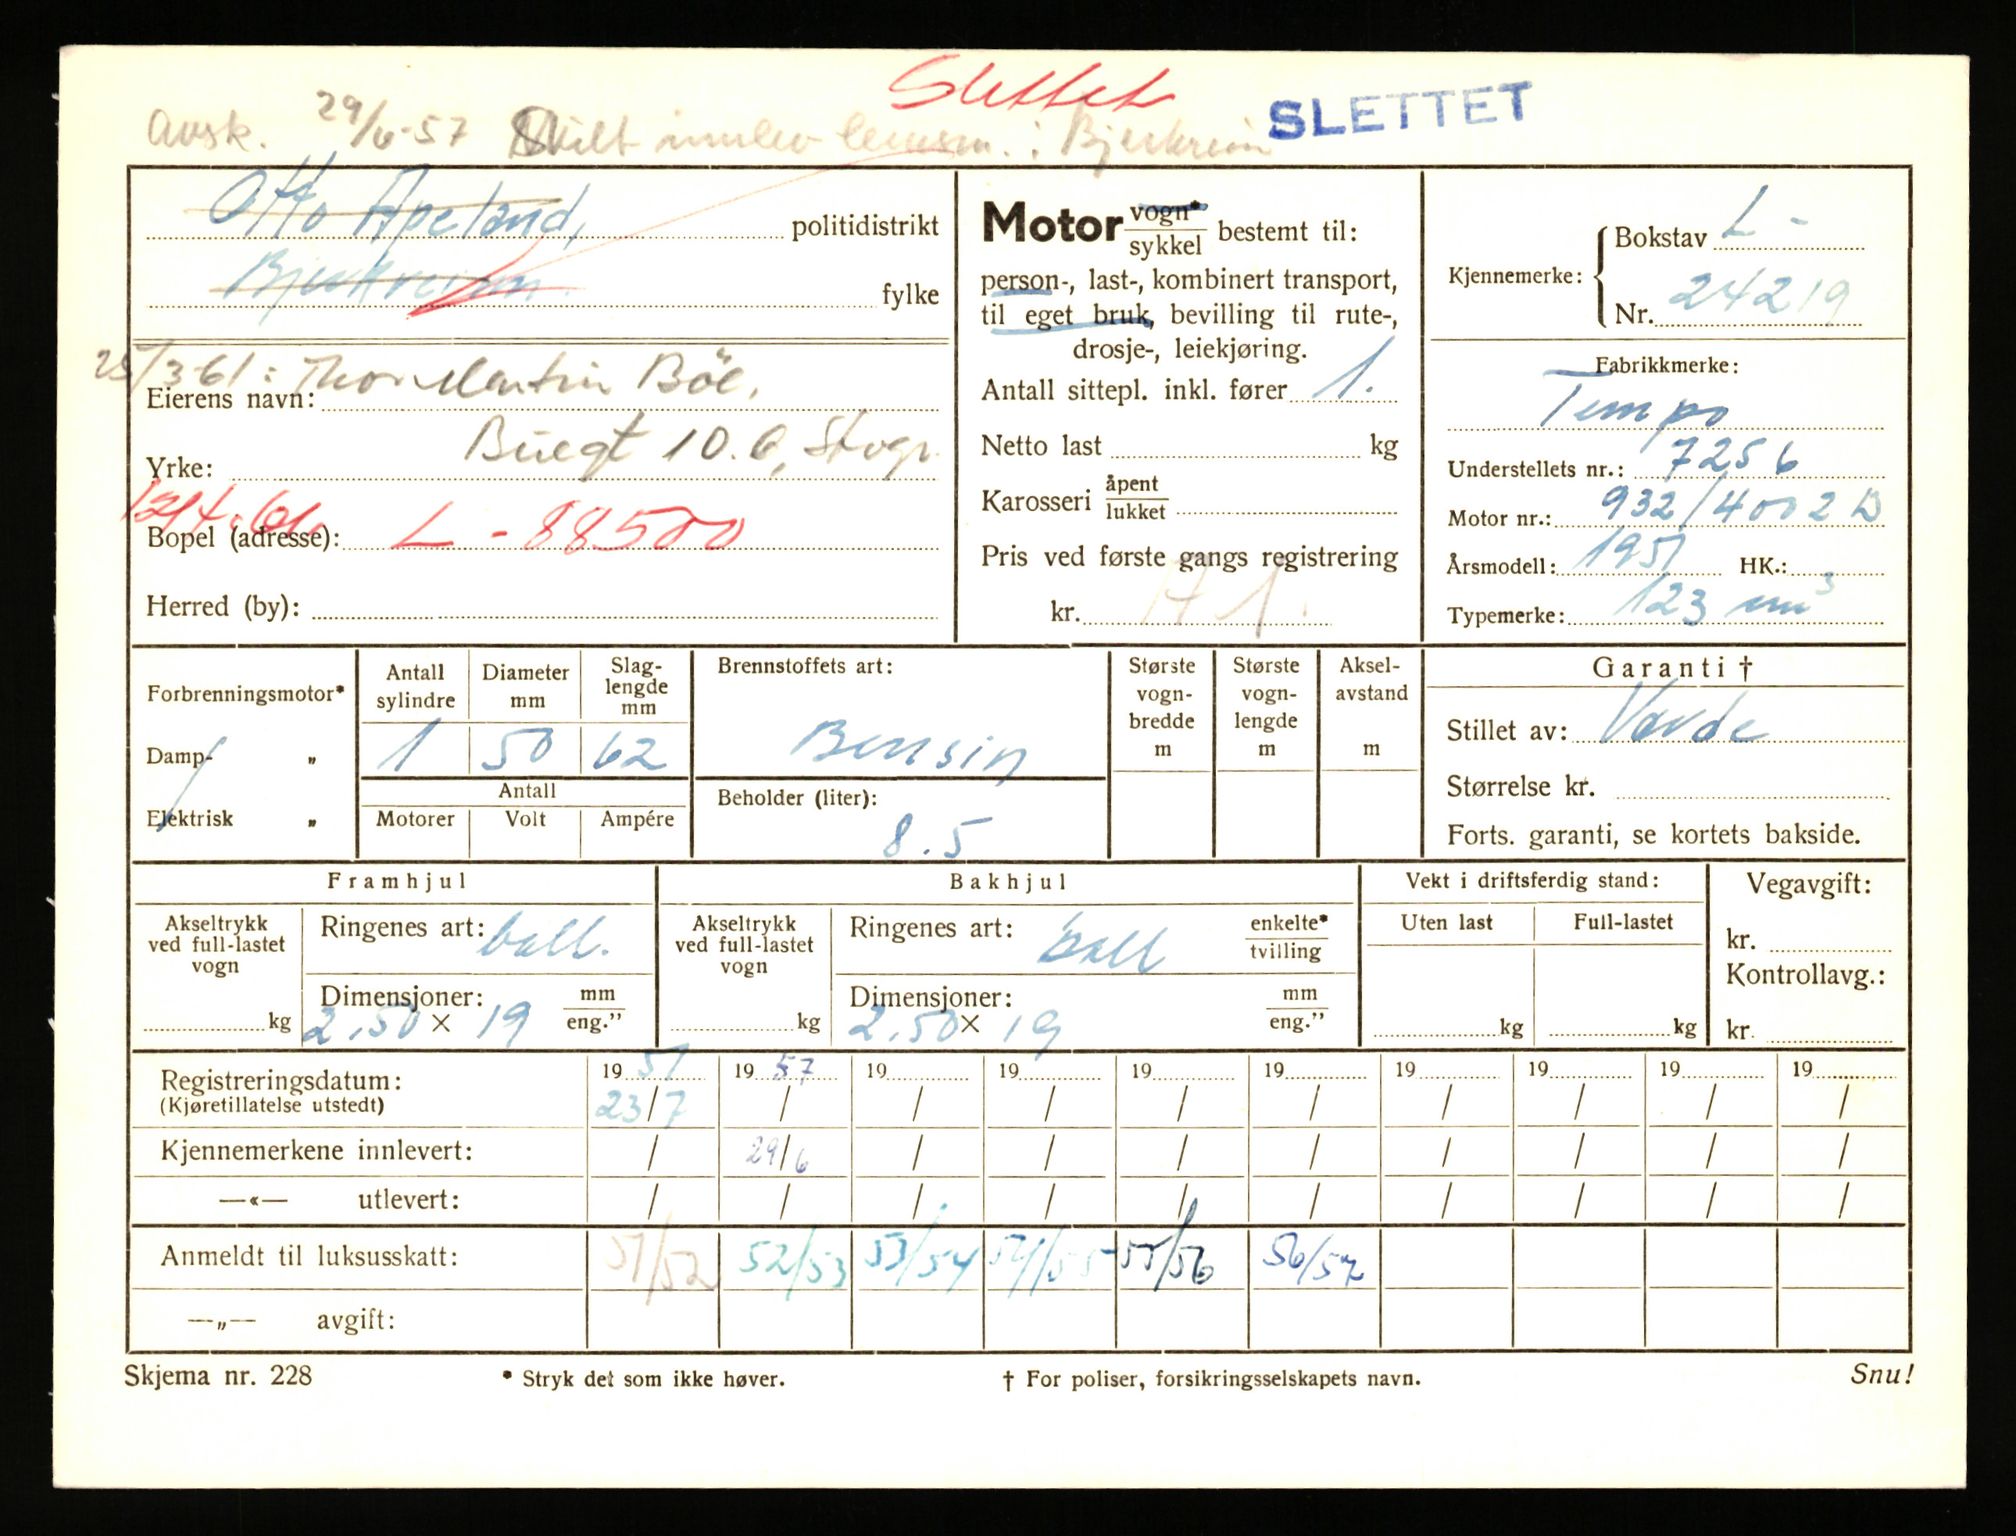 Slettet
SLETTET
Avsk. 29/6-57 Skilt innlev lensm. i Bjerkreim
Otto Apeland, politidistrikt
Bjerkreim. fylke
25/3 61: Thor Martin Böe,
Eierens navn:
10.6, Stvgr.
Yrke:
12/4-61.
Bopel (adresse): L - 88500
Herred (by):
Motor vogn*/sykkel bestemt til:
person-, last-, kombinert transport,
til eget bruk, bevilling til rute-,
drosje-, leiekjøring.
Antall sittepl. inkl. fører 1.
Netto last kg
Karosseri åpent/lukket
Pris ved første gangs registrering
kr.
Kjennemerke: Bokstav L -
Nr. 24219
Fabrikkmerke:
Tempo
Understellets nr.: 7256
Motor nr.: 932/4002 D
Årsmodell: 1951 HK.:
Typemerke: 123 cm³
Forbrenningsmotor*
Damp- „
Elektrisk „
Antall sylindre Diameter mm Slag-lengde mm
1 50 62
Antall
Motorer Volt Ampére
Brennstoffets art:
Bensin
Beholder (liter):
8.5
Største vogn-bredde m
Største vogn-lengde m
Aksel-avstand m
Garanti †
Stillet av: Varde
Størrelse kr.
Forts. garanti, se kortets bakside.
Framhjul
Akseltrykk ved full-lastet vogn
kg
Ringenes art: ball.
Dimensjoner: mm/eng.”
2.50 × 19
Bakhjul
Akseltrykk ved full-lastet vogn
kg
Ringenes art: ball enkelte*/tvilling
Dimensjoner: mm/eng.”
2.50 × 19
Vekt i driftsferdig stand:
Uten last Full-lastet
kg kg
Vegavgift:
kr.
Kontrollavg.:
kr.
Registreringsdatum: 1951 1957 19 19 19 19 19 19 19 19
(Kjøretillatelse utstedt) 23/7 / / / / / / / / /
Kjennemerkene innlevert: / 29/6 / / / / / / / /
—«— utlevert: / / / / / / / / / /
Anmeldt til luksusskatt: 51/52 52/53 53/54 54/55 55/56 56/57
—„— avgift:
Skjema nr. 228 * Stryk det som ikke høver. † For poliser, forsikringsselskapets navn. Snu!